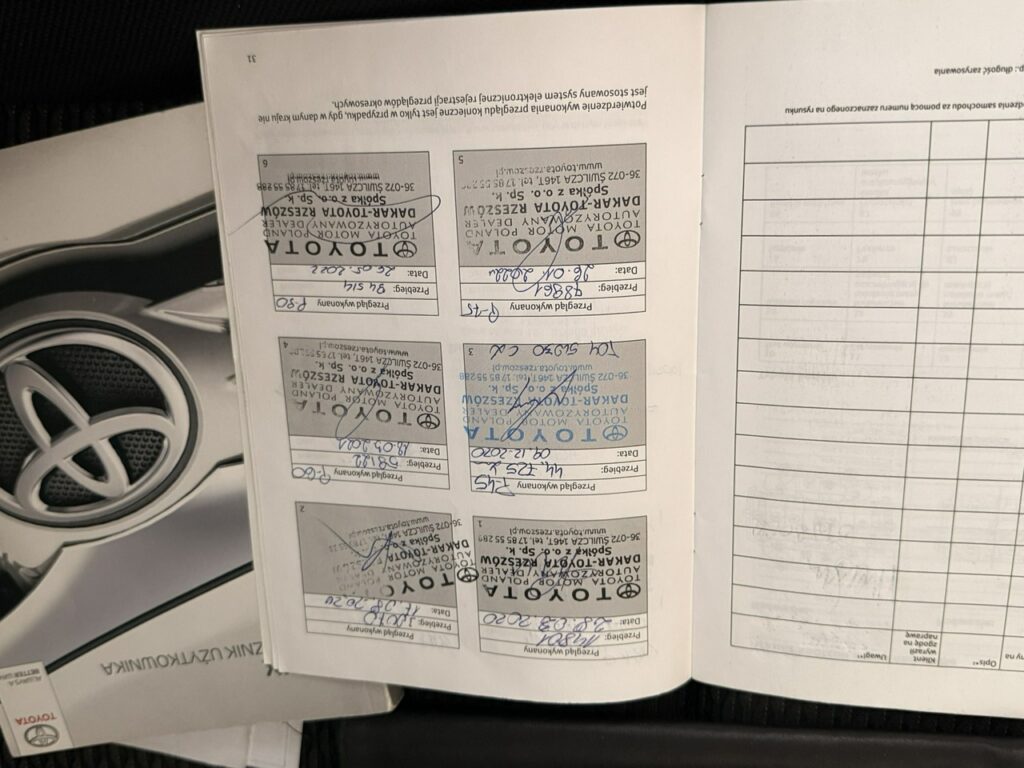 ny na
Opis**
Klient
wyraził
zgodę na
naprawę
Uwagi**
dzenia samochodu za pomocą numeru zaznaczonego na rysunku
p.: długość zarysowania
Przegląd wykonany
Przebieg: 14801
Data: 03 2020
TOYOTA
TOYOTA MOTOR POLAND
AUTORYZOWANY DEALER
DAKAR-TOYOTA RZESZÓW
Spółka z o.o. Sp. k.
36-072 ŚWILCZA 146T, tel. 17 85 55 288
www.toyota.rzeszow.pl
1
Przegląd wykonany
Przebieg:
Data: 17.08.2020
TOYO
TOYOTA MOTOR POLAND
AUTORYZOWANY
DAKAR-TOYOTA
Spółka z o.
36-072 ŚWILCZA 146T,
www.toyota.rzeszow.pl
2
Przegląd wykonany P-45
Przebieg: 44.725
Data: 09.12.2020
TOYOTA
TOYOTA MOTOR POLAND
AUTORYZOWANY DEALER
DAKAR-TOYOTA RZESZÓW
Spółka z o.o. Sp. k.
36-072 ŚWILCZA 146T, tel. 17 85 55 288
www.toyota.rzeszow.pl
3
Przegląd wykonany P-60
Przebieg: 58122
Data: 18.05.2021
TOYOTA
TOYOTA MOTOR POLAND
AUTORYZOWANY DEALER
DAKAR-TOYOTA RZESZÓW
Spółka z o.o. Sp. k.
36-072 ŚWILCZA 146T, tel. 17 85 55 288
www.toyota.rzeszow.pl
4
Przegląd wykonany P-75
Przebieg: 78861
Data: 26.01.2022r
TOYOTA
TOYOTA MOTOR POLAND
AUTORYZOWANY DEALER
DAKAR-TOYOTA RZESZÓW
Spółka z o.o. Sp. k.
36-072 ŚWILCZA 146T, tel. 17 85 55 288
www.toyota.rzeszow.pl
5
Przegląd wykonany P-90
Przebieg: 94514
Data: 26.05.2022
TOYOTA
TOYOTA MOTOR POLAND
AUTORYZOWANY DEALER
DAKAR-TOYOTA RZESZÓW
Spółka z o.o. Sp. k.
36-072 ŚWILCZA 146T, tel. 17 85 55 288
www.toyota.rzeszow.pl
6
Potwierdzenie wykonania przeglądu konieczne jest tylko w przypadku, gdy w danym kraju nie
jest stosowany system elektronicznej rejestracji przeglądów okresowych.
31
TOYOTA
ALWAYS A
BETTER WAY
ZNIK UŻYTKOWNIKA